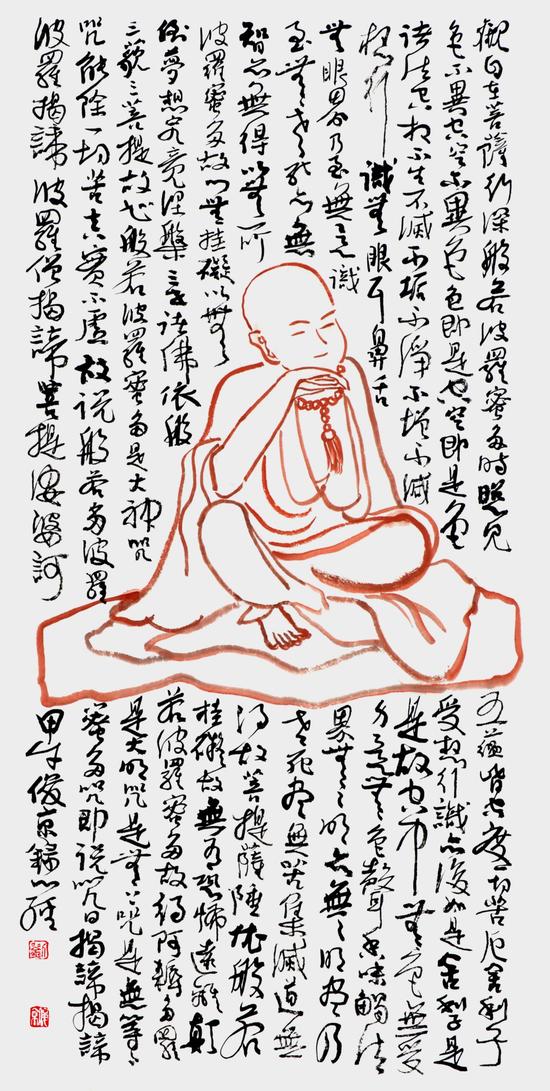 觀自在菩薩行深般若波羅蜜多時照見
五蘊皆空度一切苦厄舍利子
色不異空空不異色色即是空空即是色
受想行識亦復如是舍利子是
諸法空相不生不滅不垢不淨不增不減
是故空中無色無受
想行識無眼耳鼻舌
身意無色聲香味觸法
無眼界乃至無意識
界無無明亦無無明盡乃
至無老死亦無
老死盡無苦集滅道無
智亦無得以無所
得故菩提薩埵依般若
波羅蜜多故心無挂礙以無
挂礙故無有恐怖遠離顛
倒夢想究竟涅槃三世諸佛依般
若波羅蜜多故得阿耨多羅
三藐三菩提故知般若波羅蜜多是大神咒
是大明咒是無上咒是無等等
咒能除一切苦真實不虛故説般若多波羅
蜜多咒即説咒曰揭諦揭諦
波羅揭諦波羅僧揭諦菩提薩婆訶
甲午俊京錄心經